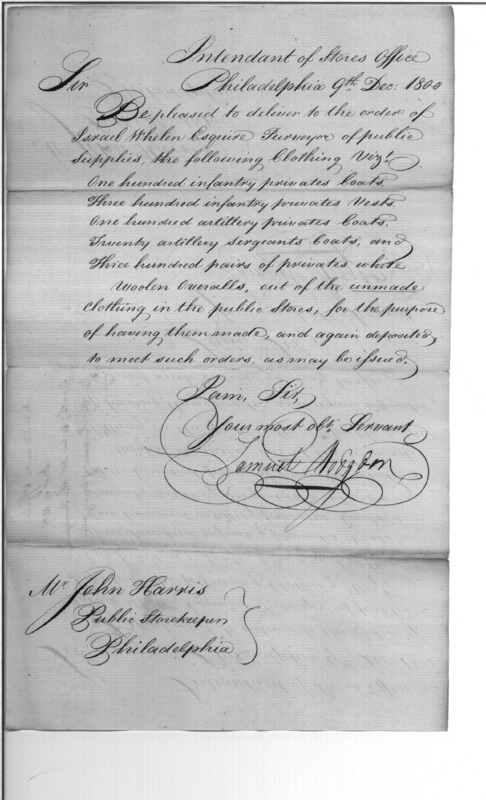 Intendant of Stores Office
Philadelphia 9th Dec: 1800
Sir
Be pleased to deliver to the order of
Israel Whelen Esquire Purveyor of public
supplies, the following Clothing Vizt.
One hundred infantry privates Coats,
Three hundred infantry privates Vests
One hundred artillery privates Coats.
Twenty artillery Sergeants Coats, and
Three hundred pairs of privates white
Woolen Overalls, out of the unmade
clothing in the public Stores, for the purpose
of having them made, and again deposited,
to meet such orders, as may be issued.
I am, Sir,
Your most obt. Servant,
Samuel Hodgdon
Mr. John Harris
Public Storekeeper
Philadelphia